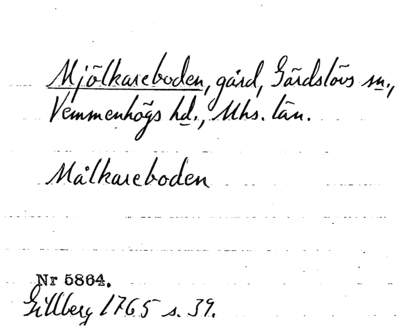 Mjölkareboden, gård, Gärdslövs sn.,
Vemmenhögs hd., Mhs. län.
Målkareboden
Nr 5864.
Gillberg 1765 s. 39.